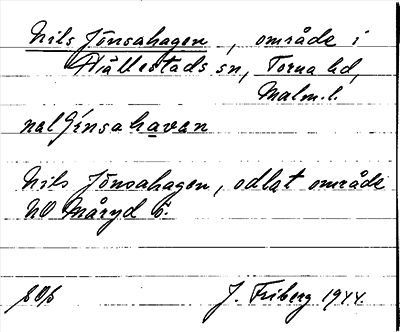 Nils Jönsahagen, område i
Hällestads sn, Torna hd,
Malm.l.
nal Jènsahavan
Nils Jönsahagen, odlat område
NO Måryd 6.
J. Friberg 1944